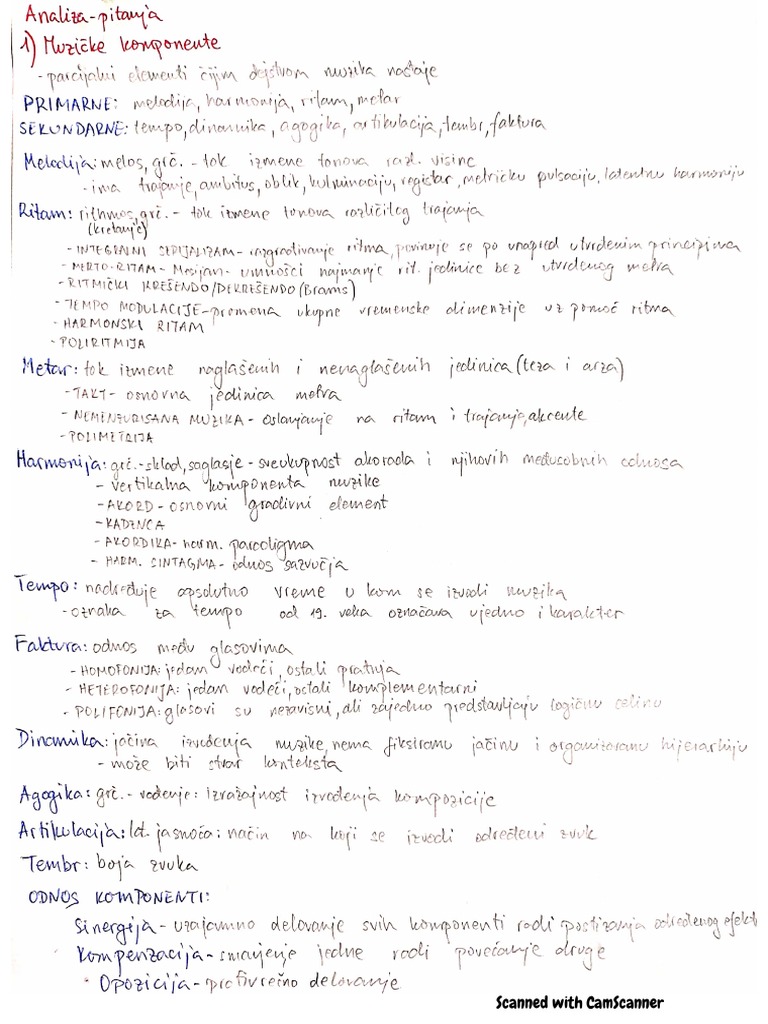 Analiza-pitanja
1) Muzičke komponente
- parcijalni elementi čijim dejstvom muzika nastaje
PRIMARNE: melodija, harmonija, ritam, metar
SEKUNDARNE: tempo, dinamika, agogika, artikulacija, tembr, faktura
Melodija: melos, grč. - tok izmene tonova razl. visine
- ima trajanje, ambitus, oblik, kulminaciju, registar, metričku pulsaciju, latentnu harmoniju
Ritam: rithmos, grč. - tok izmene tonova različitog trajanja
(kretanje)
- INTEGRALNI SERIJALIZAM - razgraničavanje ritma, povinuje se po unapred utvrđenim principima
- MERTO-RITAM - Mesijan - umnošci najmanje rit. jedinice bez utvrđenog metra
- RITMIČKI KREŠENDO/DEKREŠENDO (Brams)
- TEMPO MODULACIJE - promena ukupne vremenske dimenzije uz pomoć ritma
- HARMONSKI RITAM
- POLIRITMIJA
Metar: tok izmene naglašenih i nenaglašenih jedinica (teza i arza)
- TAKT - osnovna jedinica metra
- NEMENZURISANA MUZIKA - oslanjanje na ritam i trajanje, akcente
- POLIMETRIJA
Harmonija: grč. - sklad, saglasje - sveukupnost akorada i njihovih međusobnih odnosa
- vertikalna komponenta muzike
- AKORD - osnovni gradivni element
- KADENCA
- AKORDIKA - harm. paradigma
- HARM. SINTAGMA - odnos sazvučja
Tempo: nadređuje apsolutno vreme u kom se izvodi muzika
- oznaka za tempo od 19. veka označava ujedno i karakter
Faktura: odnos među glasovima
- HOMOFONIJA: jedan vodeći, ostali pratnja
- HETEROFONIJA: jedan vodeći, ostali komplementarni
- POLIFONIJA: glasovi su nezavisni, ali zajedno predstavljaju logičnu celinu
Dinamika: jačina izvođenja muzike, nema fiksiranu jačinu i organizovanu hijerarhiju
- može biti stvar konteksta
Agogika: grč. - vođenje: izražajnost izvođenja kompozicije
Artikulacija: lat. jasnoća: način na koji se izvodi određeni zvuk
Tembr: boja zvuka
ODNOS KOMPONENTI:
Sinergija - uzajamno delovanje svih komponenti radi postizanja određenog efekta
Kompenzacija - smanjenje jedne radi povećanje druge
Opozicija - protivrečno delovanje
Scanned with CamScanner